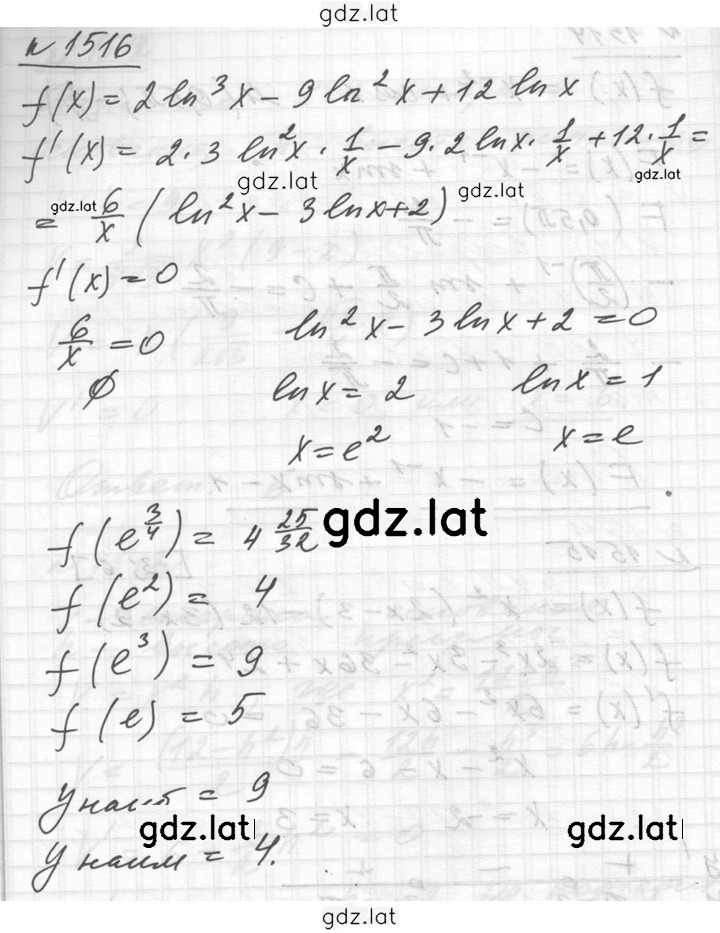 gdz.lat
№ 1516
f(x) = 2 ln³ x - 9 ln² x + 12 ln x
f'(x) = 2·3 ln² x · 1/x - 9·2 ln x · 1/x + 12 · 1/x =
gdz.lat gdz.lat gdz.lat gdz.lat
= 6/x (ln² x - 3 ln x + 2)
f'(x) = 0
6/x = 0 ln² x - 3 ln x + 2 = 0
∅ ln x = 2 ln x = 1
x = e² x = e
f(e^(3/4)) = 4 25/32
gdz.lat
f(e²) = 4
f(e³) = 9
f(e) = 5
y наиб = 9
gdz.lat gdz.lat
y наим = 4.
gdz.lat